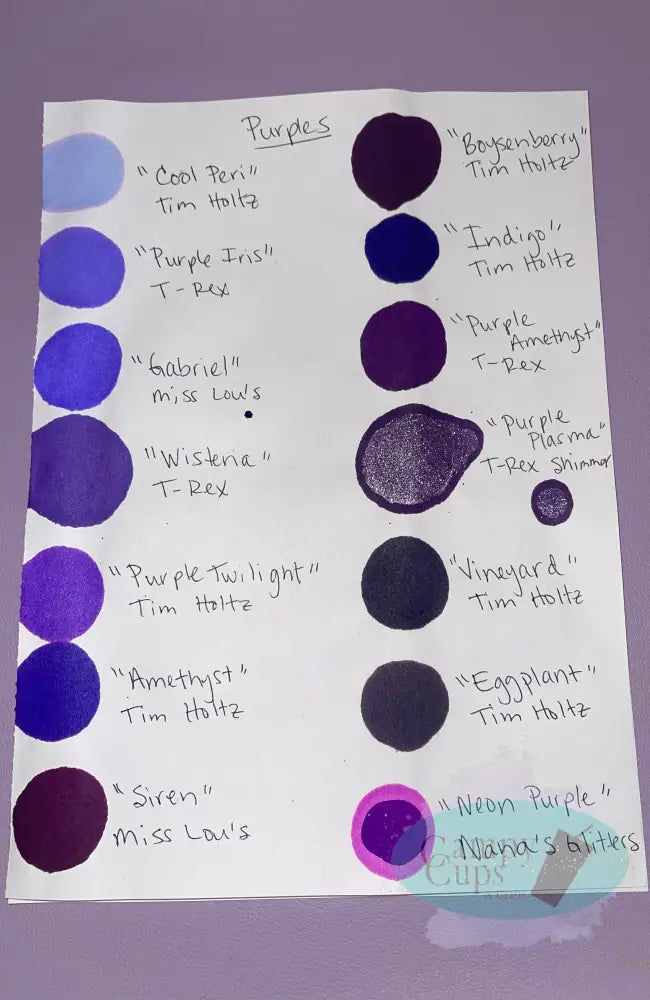 Purples
"Cool Peri"
Tim Holtz
"Purple Iris"
T-Rex
"Gabriel"
miss Lou's
"Wisteria"
T-Rex
"Purple Twilight"
Tim Holtz
"Amethyst"
Tim Holtz
"Siren"
miss Lou's
"Boysenberry"
Tim Holtz
"Indigo"
Tim Holtz
"Purple
Amethyst"
T-Rex
"Purple
Plasma"
T-Rex Shimmer
"Vineyard"
Tim Holtz
"Eggplant"
Tim Holtz
"Neon Purple"
Nana's Glitters
Campy
Cups